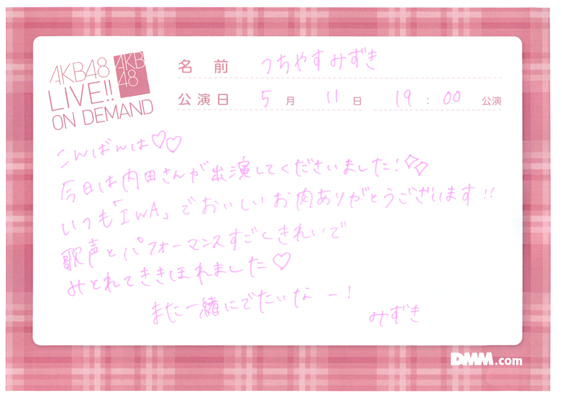 AKB48
LIVE!!
ON DEMAND
AKB
48
名前 つちやすみずき
公演日 5月 11日 19:00 公演
こんばんは♡♡
今日は内田さんが出演してくださいました!
いつも「IWA」でおいしいお肉ありがとうございます!!
歌声とパフォーマンスすごくきれいで
みとれてききほれました♡
また一緒にでたいなー!
みずき
DMM.com